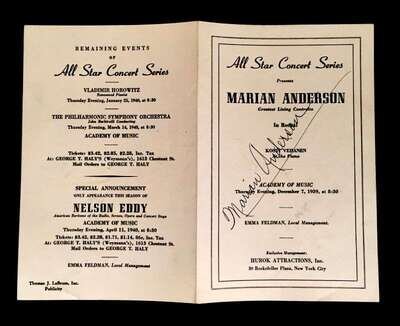 REMAINING EVENTS
OF
All Star Concert Series
VLADIMIR HOROWITZ
Renowned Pianist
Thursday Evening, January 25, 1940, at 8:30
THE PHILHARMONIC SYMPHONY ORCHESTRA
John Barbirolli Conducting
Thursday Evening, March 14, 1940, at 8:30
ACADEMY OF MUSIC
Tickets: $3.42, $2.85, $2.28, Inc. Tax
At: GEORGE T. HALY'S (Weymann's), 1613 Chestnut St.
Mail Orders to GEORGE T. HALY
SPECIAL ANNOUNCEMENT
ONLY APPEARANCE THIS SEASON OF
NELSON EDDY
American Baritone of the Radio, Screen, Opera and Concert Stage
ACADEMY OF MUSIC
Thursday Evening, April 11, 1940, at 8:30
Tickets: $3.42, $2.28, $1.71, $1.14, 86c, Inc. Tax
At: GEORGE T. HALY'S (Weymann's), 1613 Chestnut St.
Mail Orders to GEORGE T. HALY
EMMA FELDMAN, Local Management
Thomas J. LaBrum, Inc.
Publicity
All Star Concert Series
Presents
MARIAN ANDERSON
Greatest Living Contralto
In Recital
Marian Anderson
KOSTI VEHANEN
At the Piano
ACADEMY OF MUSIC
Thursday Evening, December 7, 1939, at 8:30
EMMA FELDMAN, Local Management
Exclusive Management:
HUROK ATTRACTIONS, Inc.
30 Rockefeller Plaza, New York City